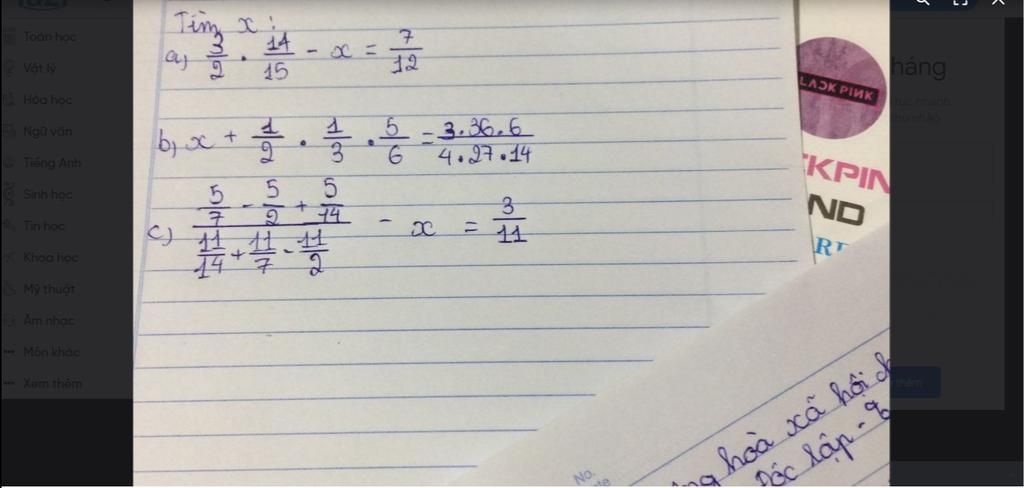 Toán học
Vật lý
Hóa học
Ngữ văn
Tiếng Anh
Sinh học
Tin học
Khoa học
Mỹ thuật
Âm nhạc
Môn khác
Xem thêm
Tìm x :
a) 3/2 . 14/15 - x = 7/12
b) x + 1/2 . 1/3 . 5/6 = 3.36.6 / 4.27.14
c) (5/7 - 5/2 + 5/14) / (11/14 + 11/7 - 11/2) - x = 3/11
BLACKPINK
CKPIN
ND
háng
hoà xã hội ch
Độc lập -
No.
thêm